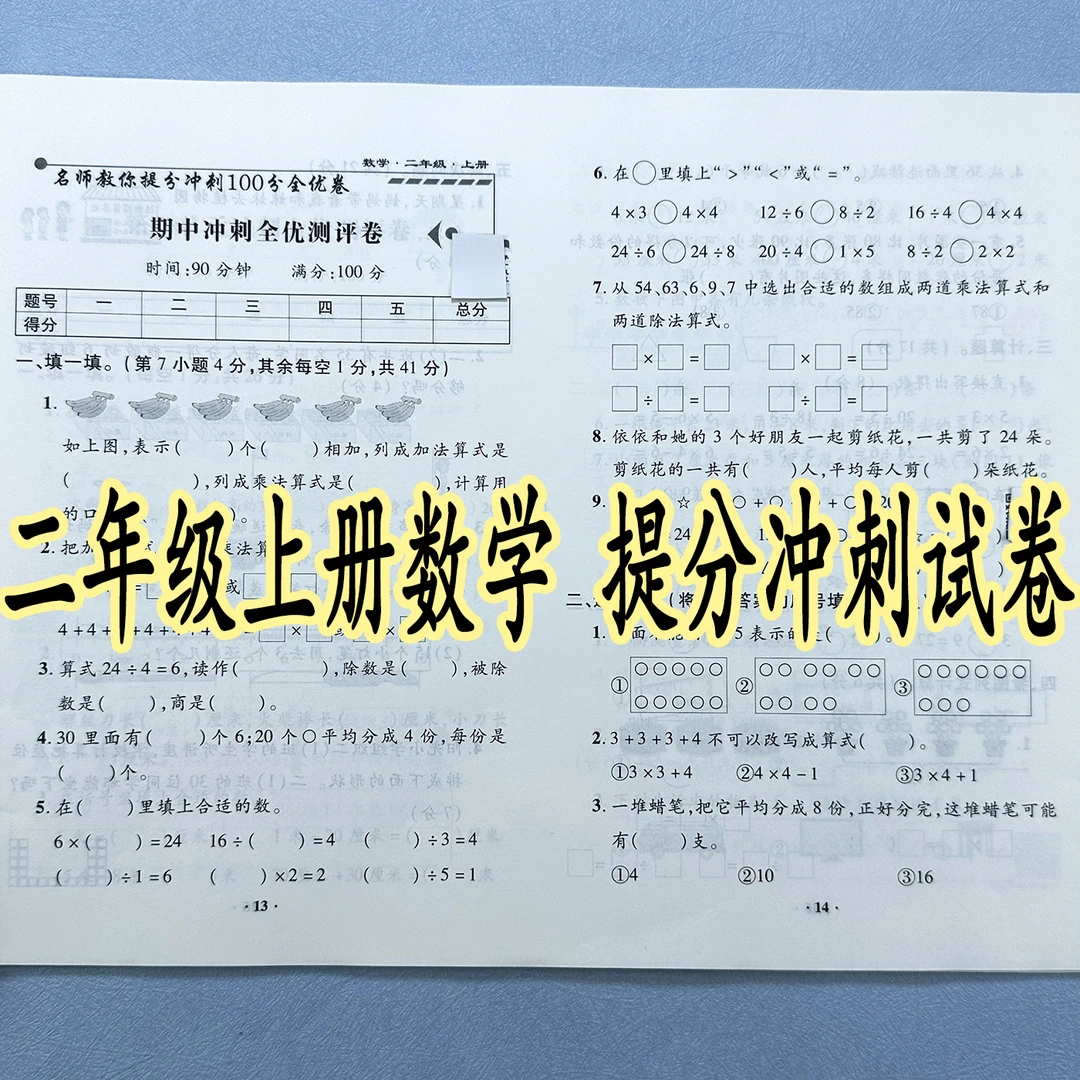 数学·二年级·上册
名师教你提分冲刺100分全优卷
期中冲刺全优测评卷
时间:90分钟 满分:100分
题号 一 二 三 四 五 总分
得分
一、填一填。(第7小题4分,其余每空1分,共41分)
1.
如上图,表示( )个( )相加,列成加法算式是
( ),列成乘法算式是( ),计算用
的口 )。
二年级上册数学 提分冲刺试卷
2.把加
或
4+4+ +4+4
3.算式24÷4=6,读作( ),除数是( ),被除
数是( ),商是( )。
4.30里面有( )个6;20个○平均分成4份,每份是
( )个。
5.在( )里填上合适的数。
6×( )=24 16÷( )=4 ( )÷3=4
( )÷1=6 ( )×2=2 ( )÷5=1
·13·
6.在○里填上“>”“<”或“=”。
4×3○4×4 12÷6○8÷2 16÷4○4×4
24÷6○24÷8 20÷4○1×5 8÷2○2×2
7.从54、63、6、9、7中选出合适的数组成两道乘法算式和
两道除法算式。
□×□=□ □×□=□
□÷□=□ □÷□=□
8.依依和她的3个好朋友一起剪纸花,一共剪了24朵。
剪纸花的一共有( )人,平均每人剪( )朵纸花。
9. ☆ ○+○
24
二、 (将 答
1. 面 5表示的是( )。
① ② ③
2.3+3+3+4不可以改写成算式( )。
①3×3+4 ②4×4-1 ③3×4+1
3.一堆蜡笔,把它平均分成8份,正好分完,这堆蜡笔可能
有( )支。
①4 ②10 ③16
·14·